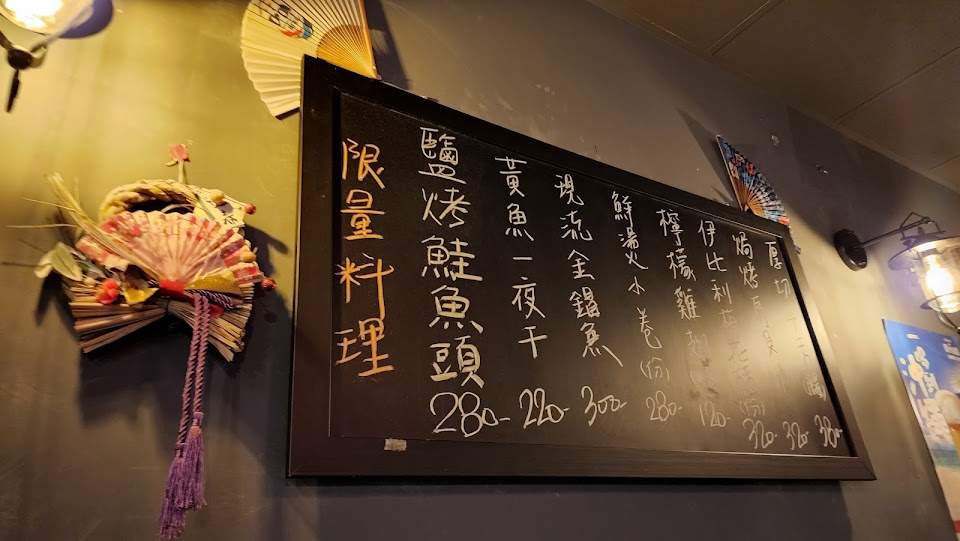 限量料理
鹽烤鮭魚頭 280-
黃魚一夜干 220-
現流金錩魚 300-
鮮湯火小卷(份) 280-
檸檬雞翅 120-
伊比利 (份) 320-
焗烤 320-
厚切 380-